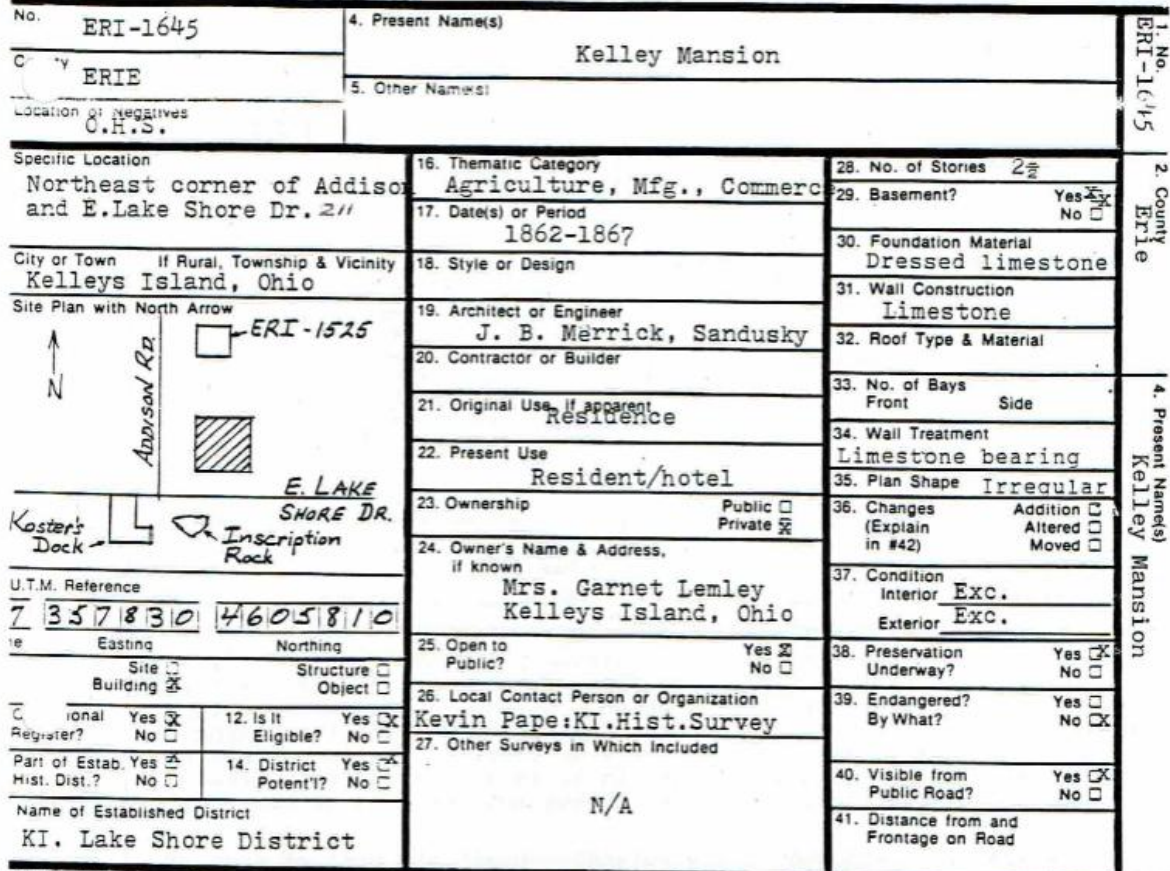 No.
ERI-1645
ERIE
Location of Negatives
O.H.S.
4. Present Name(s)
Kelley Mansion
5. Other Name(s)
1. No.
ERI-1645
2. County
Erie
4. Present Name(s)
Kelley Mansion
Specific Location
Northeast corner of Addison
and E.Lake Shore Dr. 211
City or Town If Rural, Township & Vicinity
Kelleys Island, Ohio
Site Plan with North Arrow
N
ADDISON RD.
ERI-1525
E. LAKE
SHORE DR.
Koster's
Dock
Inscription
Rock
U.T.M. Reference
7 357830 4605810
Easting Northing
Site
Structure
Building X
Object
ional Yes X
Register? No
12. Is It Yes X
Eligible? No
Part of Estab. Yes X
Hist. Dist.? No
14. District Yes X
Potent'l? No
Name of Established District
KI. Lake Shore District
16. Thematic Category
Agriculture, Mfg., Commerce
17. Date(s) or Period
1862-1867
18. Style or Design
19. Architect or Engineer
J. B. Merrick, Sandusky
20. Contractor or Builder
21. Original Use, if apparent
Residence
22. Present Use
Resident/hotel
23. Ownership Public
Private X
24. Owner's Name & Address,
if known
Mrs. Garnet Lemley
Kelleys Island, Ohio
25. Open to Yes X
Public? No
26. Local Contact Person or Organization
Kevin Pape:KI.Hist.Survey
27. Other Surveys in Which Included
N/A
28. No. of Stories 2½
29. Basement? Yes XX
No
30. Foundation Material
Dressed limestone
31. Wall Construction
Limestone
32. Roof Type & Material
33. No. of Bays
Front Side
34. Wall Treatment
Limestone bearing
35. Plan Shape Irregular
36. Changes Addition
(Explain Altered
in #42) Moved
37. Condition
Interior Exc.
Exterior Exc.
38. Preservation Yes X
Underway? No
39. Endangered? Yes
By What? No X
40. Visible from Yes X
Public Road? No
41. Distance from and
Frontage on Road